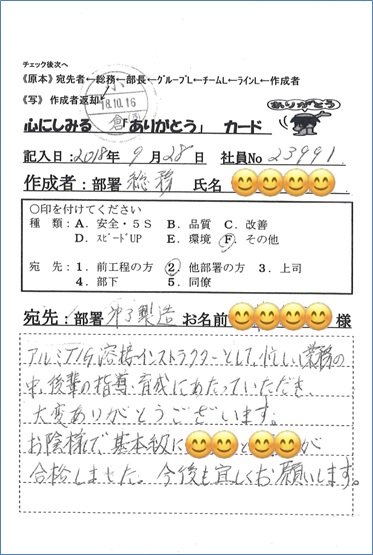 チェック後次へ
《原本》宛先者←総務←部長←ｸﾞﾙｰﾌﾟL←チームL←ラインL←作成者
《写》作成者返却
18.10.16
ありがとう
心にしみる「ありがとう」カード
記入日:2018年9月28日 社員No 23991
作成者:部署 総務 氏名
○印を付けてください
種類:A．安全・5S B．品質 C．改善
D．ｽﾋﾟｰﾄﾞUP E．環境 F．その他
宛先:1．前工程の方 2．他部署の方 3．上司
4．部下 5．同僚
宛先:部署 第3製造 お名前 様
アルミTIG溶接インストラクターとして、忙しい業務の
中、後輩の指導・育成にあたっていただき、
大変ありがとうございます。
お陰様で、基本級に と が
合格しました。今後も宜しくお願いします。